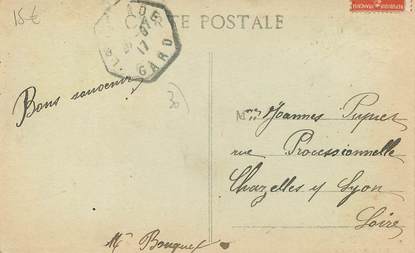 15€
CARTE POSTALE
GARD
Bons souvenirs
Joannes
rue Processionnelle
Chazelles s/ Lyon
Loire
Mce Bouquet